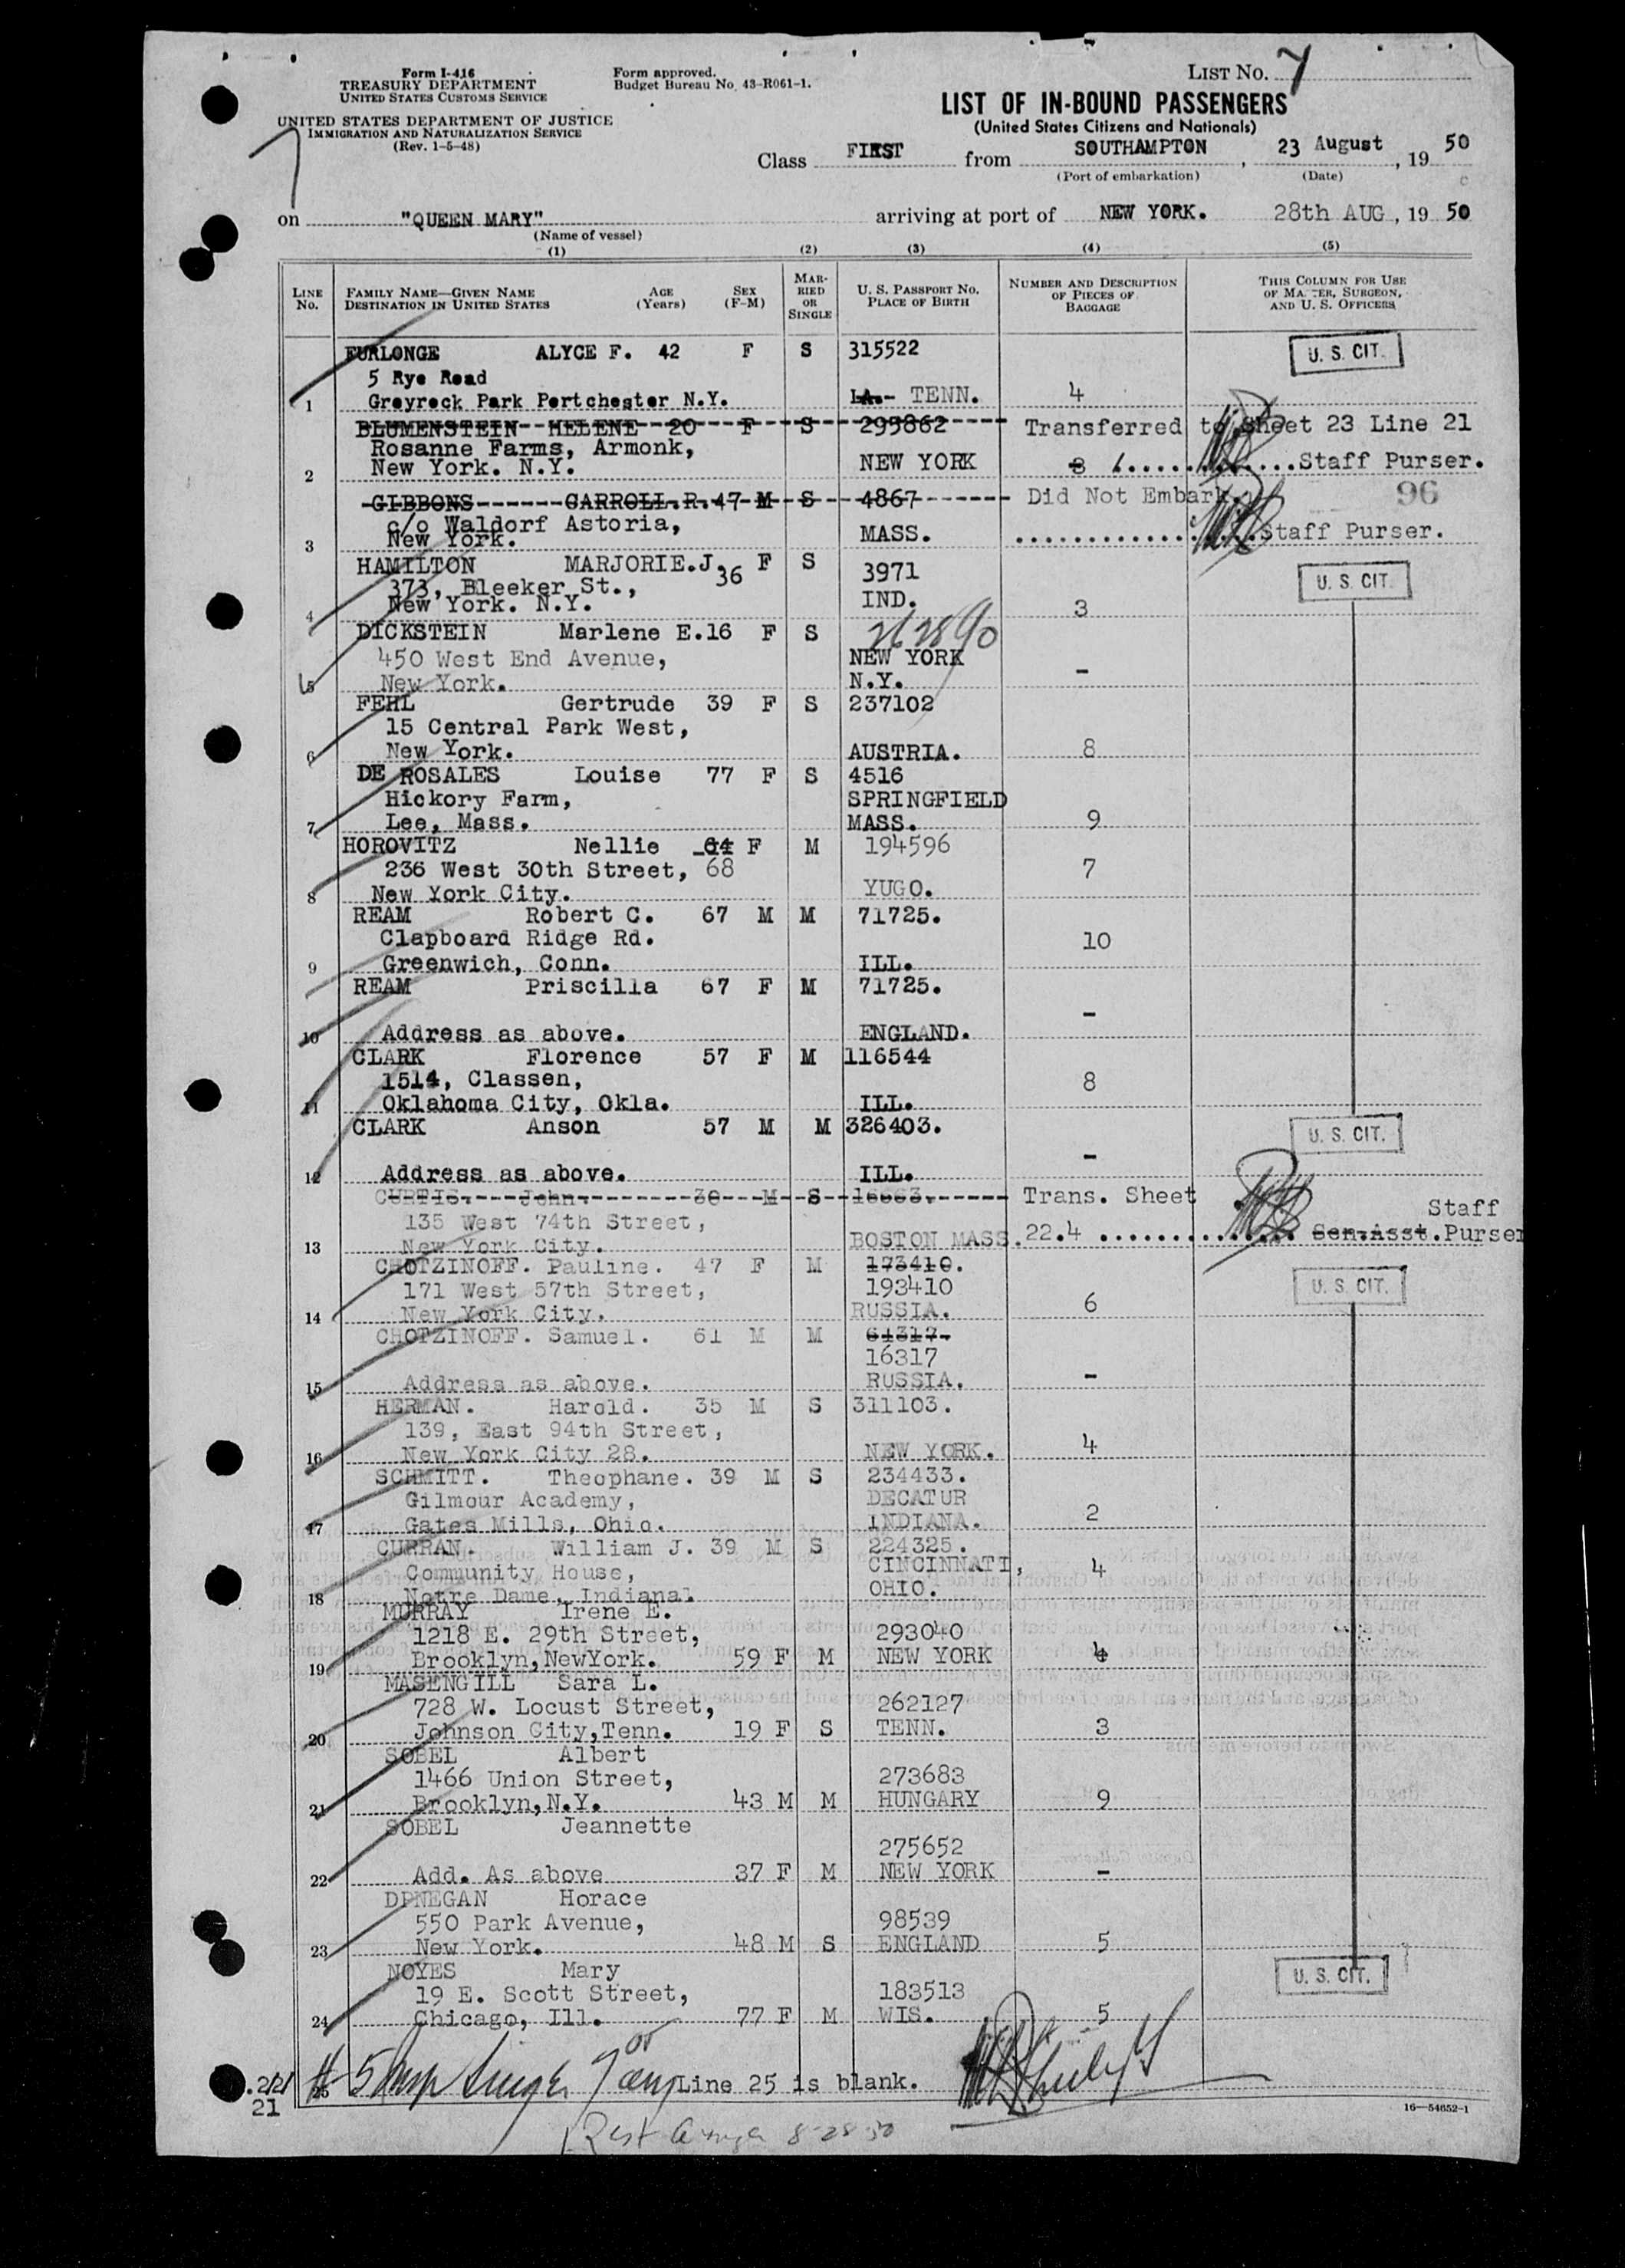 Form I-416
TREASURY DEPARTMENT
UNITED STATES CUSTOMS SERVICE
UNITED STATES DEPARTMENT OF JUSTICE
IMMIGRATION AND NATURALIZATION SERVICE
(Rev. 1-5-48)
Form approved.
Budget Bureau No. 43-R061-1.
LIST NO. 7
LIST OF IN-BOUND PASSENGERS
(United States Citizens and Nationals)
Class FIRST from SOUTHAMPTON, 23 August, 19 50
(Port of embarkation) (Date)
on "QUEEN MARY" arriving at port of NEW YORK. 28th AUG, 19 50
(Name of vessel)
(1) (2) (3) (4) (5)
LINE NO. FAMILY NAME—GIVEN NAME DESTINATION IN UNITED STATES AGE (Years) SEX (F-M) MARRIED OR SINGLE U. S. PASSPORT NO. PLACE OF BIRTH NUMBER AND DESCRIPTION OF PIECES OF BAGGAGE THIS COLUMN FOR USE OF MASTER, SURGEON, AND U. S. OFFICERS
FURLONGE ALYCE F. 42 F S 315522 U. S. CIT.
5 Rye Road
1 Greyrock Park Portchester N.Y. LA. TENN. 4
BLUMENSTEIN HELENE 20 F S 295862 Transferred to Sheet 23 Line 21
Rosanne Farms, Armonk,
2 New York. N.Y. NEW YORK 3 Staff Purser.
GIBBONS CARROLL.R. 47 M S 4867 Did Not Embark. 96
c/o Waldorf Astoria,
3 New York. MASS. Staff Purser.
HAMILTON MARJORIE.J. 36 F S 3971 U. S. CIT.
373, Bleeker St.,
4 New York. N.Y. IND. 3
DICKSTEIN Marlene E. 16 F S
450 West End Avenue, NEW YORK
5 New York. N.Y. -
FEHL Gertrude 39 F S 237102
15 Central Park West,
6 New York. AUSTRIA. 8
DE ROSALES Louise 77 F S 4516
Hickory Farm, SPRINGFIELD
7 Lee, Mass. MASS. 9
HOROVITZ Nellie 64 F M 194596
236 West 30th Street, 68 7
8 New York City. YUGO.
REAM Robert C. 67 M M 71725.
Clapboard Ridge Rd. 10
9 Greenwich, Conn. ILL.
REAM Priscilla 67 F M 71725.
-
10 Address as above. ENGLAND.
CLARK Florence 57 F M 116544
1514, Classen, 8
11 Oklahoma City, Okla. ILL.
CLARK Anson 57 M M 326403. U. S. CIT.
-
12 Address as above. ILL.
CURTIS. John. 30 M S 16663. Trans. Sheet
135 West 74th Street, Staff
13 New York City. BOSTON MASS. 22.4 Sen.Asst. Purser
CHOTZINOFF. Pauline. 47 F M 173410.
171 West 57th Street, 193410 U. S. CIT.
14 New York City. RUSSIA. 6
CHOTZINOFF. Samuel. 61 M M 61317.
16317
15 Address as above. RUSSIA. -
HERMAN. Harold. 35 M S 311103.
139, East 94th Street,
16 New York City 28. NEW YORK. 4
SCHMITT. Theophane. 39 M S 234433.
Gilmour Academy, DECATUR
17 Gates Mills, Ohio. INDIANA. 2
CURRAN. William J. 39 M S 224325.
Community House, CINCINNATI, 4
18 Notre Dame, Indiana. OHIO.
MURRAY Irene E.
1218 E. 29th Street, 293040
19 Brooklyn,NewYork. 59 F M NEW YORK 4
MASENGILL Sara L.
728 W. Locust Street, 262127
20 Johnson City,Tenn. 19 F S TENN. 3
SOBEL Albert
1466 Union Street, 273683
21 Brooklyn,N.Y. 43 M M HUNGARY 9
SOBEL Jeannette
275652
22 Add. As above 37 F M NEW YORK -
DPNEGAN Horace
550 Park Avenue, 98539
23 New York. 48 M S ENGLAND 5
NOYES Mary U. S. CIT.
19 E. Scott Street, 183513
24 Chicago, Ill. 77 F M WIS. 5
25 Line 25 is blank.
21
8-28-50
16—54652-1